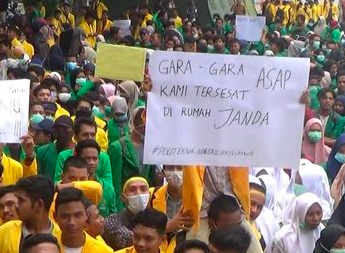 GARA-GARA ASAP
KAMI TERSESAT
DI RUMAH JANDA